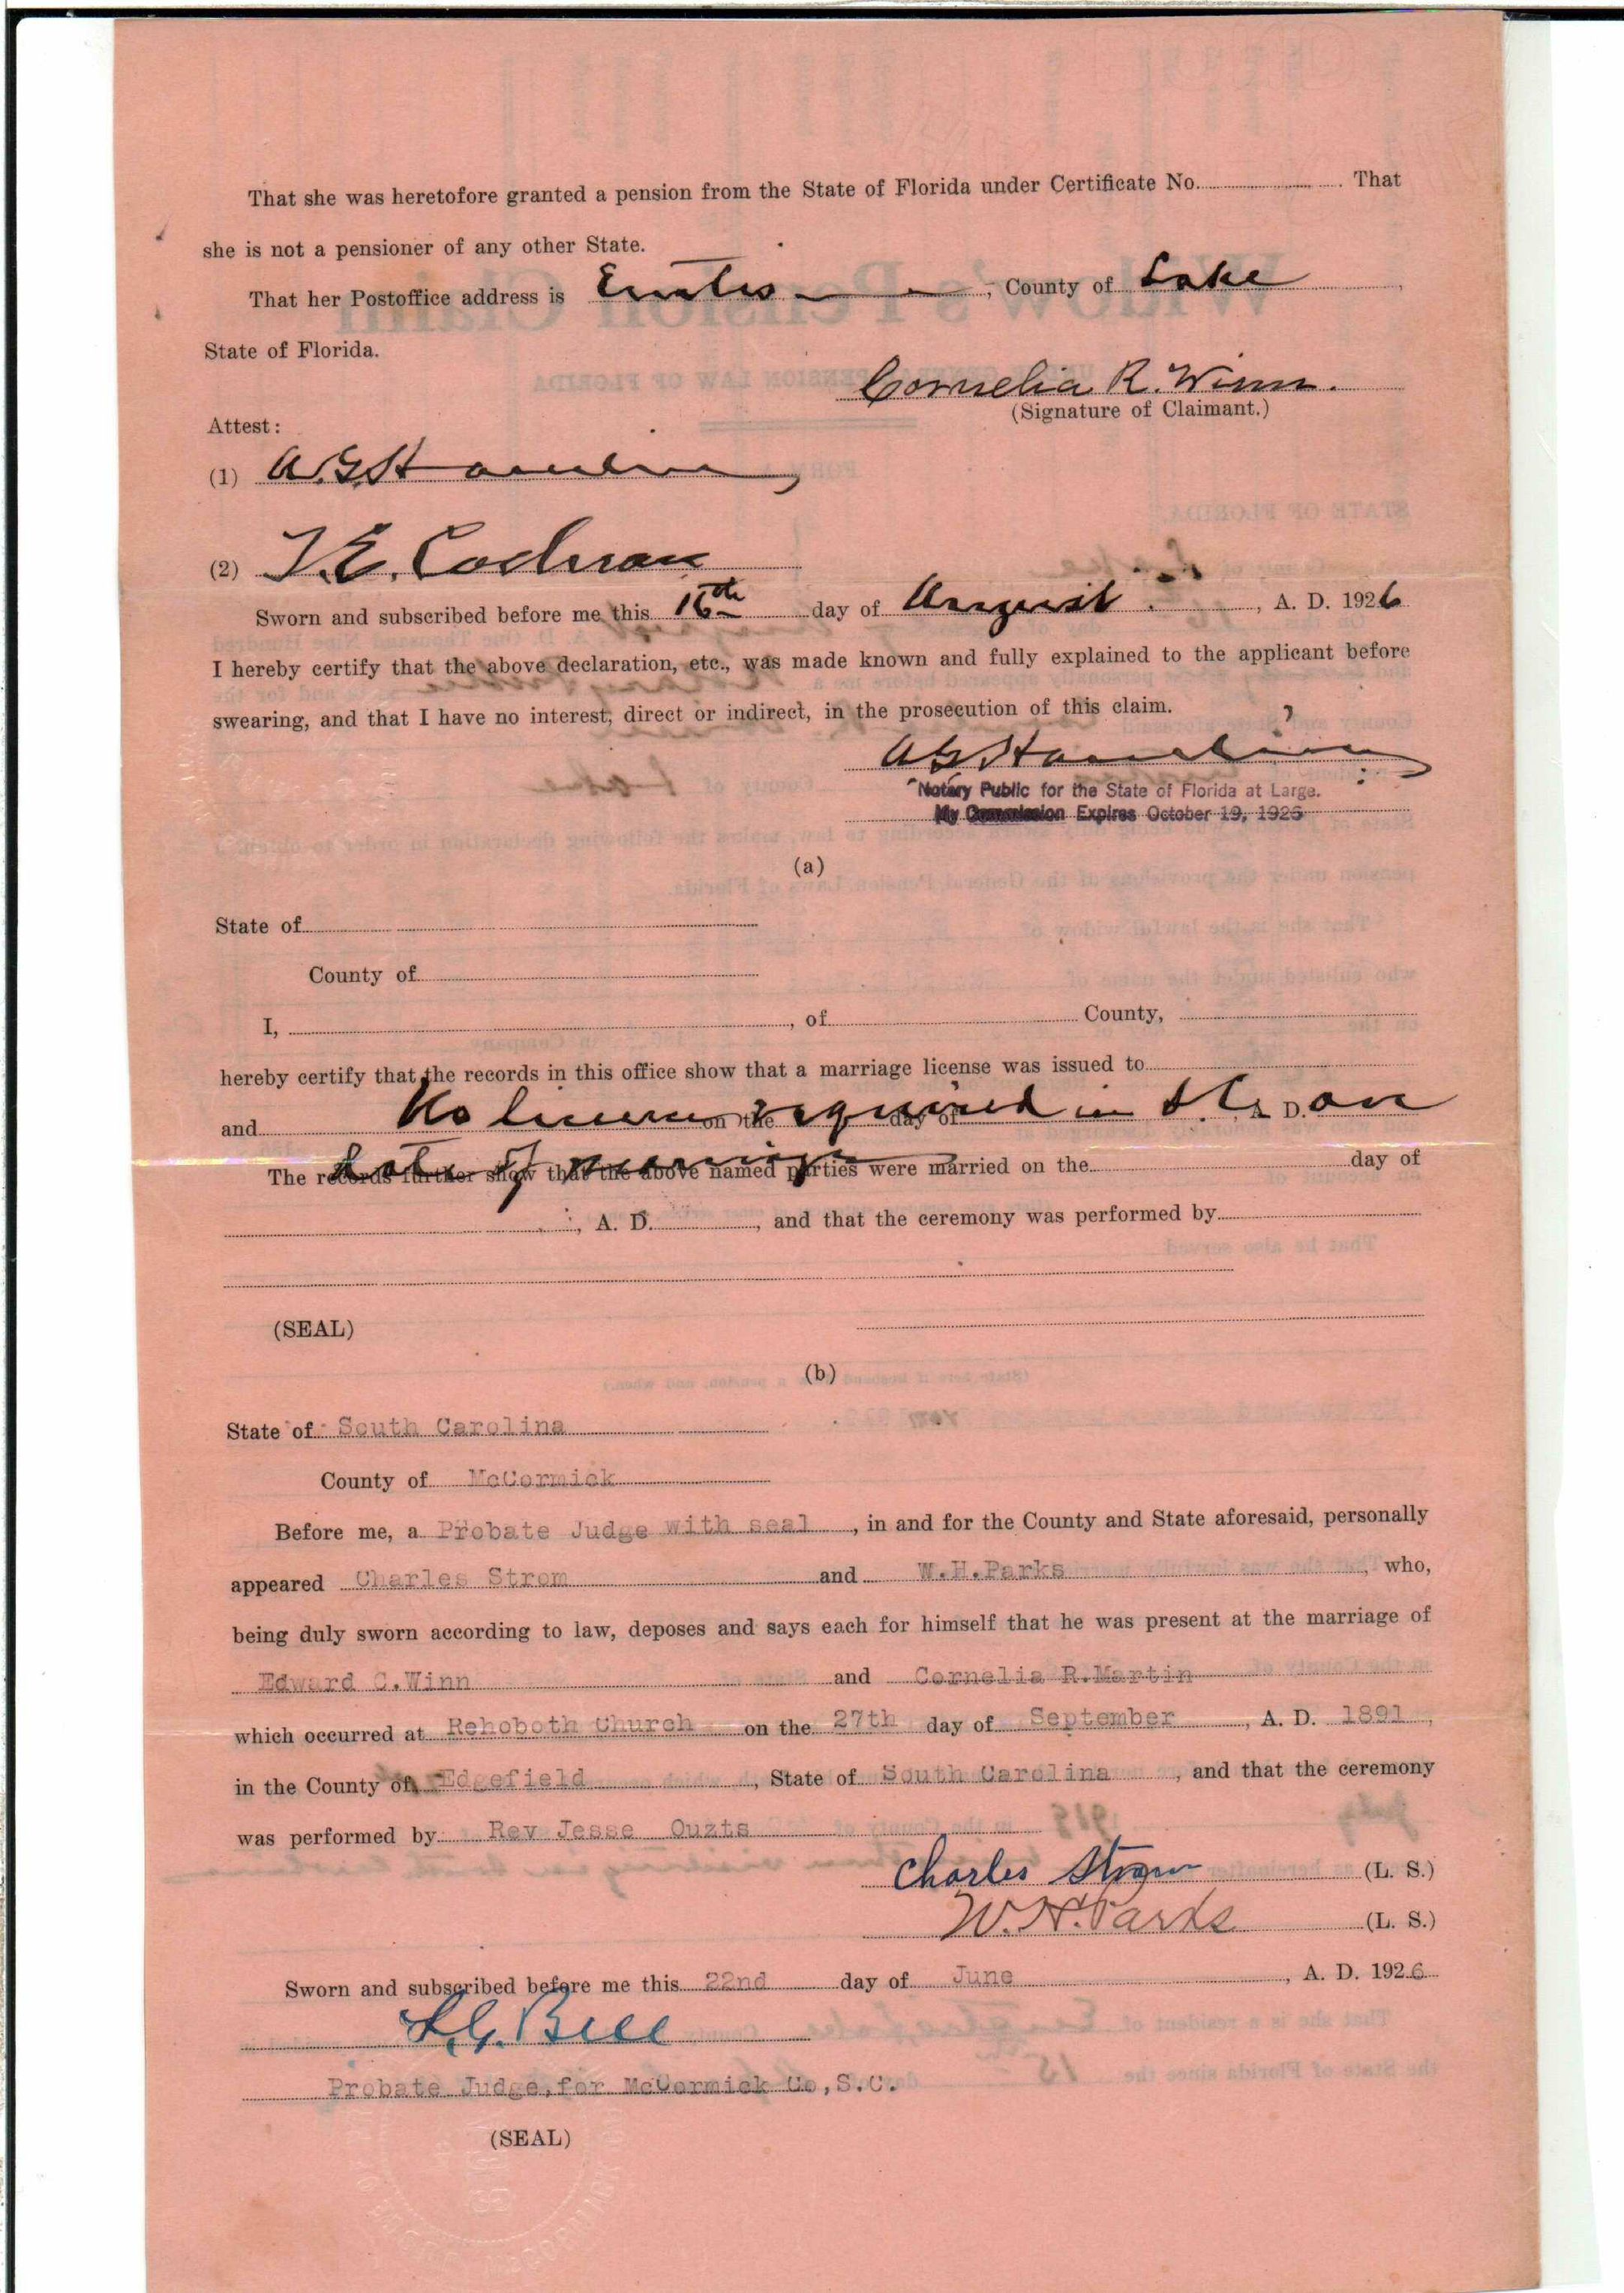 That she was heretofore granted a pension from the State of Florida under Certificate No. That
she is not a pensioner of any other State.
That her Postoffice address is Eustis, County of Lake,
State of Florida.
Cornelia R. Winn.
(Signature of Claimant.)
Attest:
(1) A.G. Hamlin
(2) T.E. Cochran
Sworn and subscribed before me this 16th day of August, A. D. 1926
I hereby certify that the above declaration, etc., was made known and fully explained to the applicant before
swearing, and that I have no interest, direct or indirect, in the prosecution of this claim.
A G Hamlin
Notary Public for the State of Florida at Large.
My Commission Expires October 19, 1926
(a)
State of
County of
I, , of County,
hereby certify that the records in this office show that a marriage license was issued to
and on the day of A. D.
No license required in S.C. on
date of marriage
The records further show that the above named parties were married on the day of
, A. D. , and that the ceremony was performed by
(SEAL)
(b)
State of South Carolina
County of McCormick
Before me, a Probate Judge with seal, in and for the County and State aforesaid, personally
appeared Charles Strom and W.H.Parks, who,
being duly sworn according to law, deposes and says each for himself that he was present at the marriage of
Edward C.Winn and Cornelia R.Martin
which occurred at Rehoboth Church on the 27th day of September, A. D. 1891,
in the County of Edgefield, State of South Carolina, and that the ceremony
was performed by Rev Jesse Ouzts
Charles Strom (L. S.)
W.H. Parks (L. S.)
Sworn and subscribed before me this 22nd day of June, A. D. 1926
L.G. Bell
Probate Judge, for McCormick Co, S.C.
(SEAL)